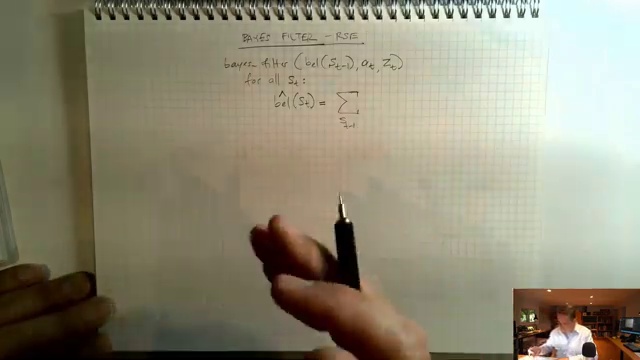 BAYES FILTER - RSE
bayes_filter (bel(S_{t-1}), a_t, z_t)
for all S_t:
b̂el(S_t) = Σ_{S_{t-1}}